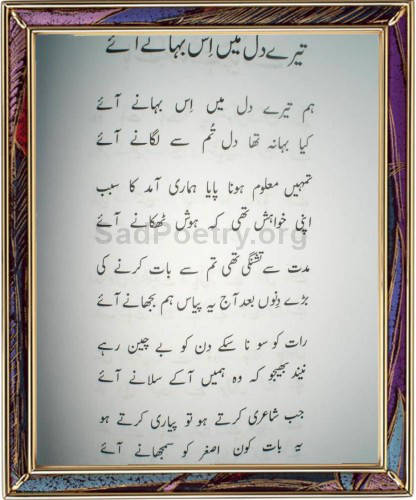 تیرے دل میں اِس بہانے آئے
ہم تیرے دل میں اِس بہانے آئے
کیا بہانہ تھا دل تُم سے لگانے آئے
تمہیں معلوم ہونا پایا ہماری آمد کا سبب
اپنی خواہش تھی کہ ہوش ٹھکانے آئے
SadPoetry.org
مدت سے تشنگی تھی تم سے بات کرنے کی
بڑے دِنوں بعد آج یہ پیاس ہم بجھانے آئے
رات کو سو نا سکے دن کو بے چین رہے
نیند بھیجو کہ وہ ہمیں آکے سلانے آئے
جب شاعری کرتے ہو تو پیاری کرتے ہو
یہ بات کون اصغر کو سمجھانے آئے